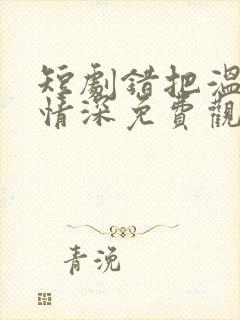 短劇錯把溫
情深免費觀
青浼